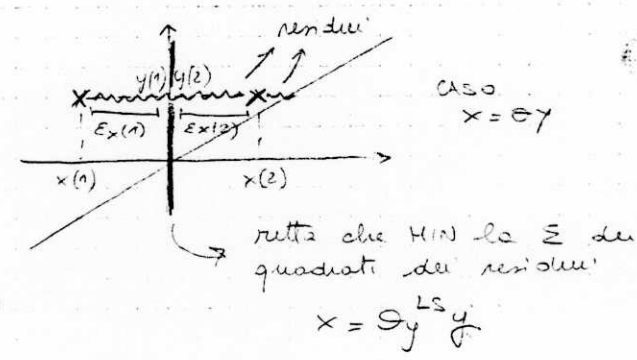 residui
y(1) y(2)
εx(1) εx(2)
x(1) x(2)
CASO
x = θy
retta che MIN la Σ dei
quadrati dei residui
x = θy^LS y